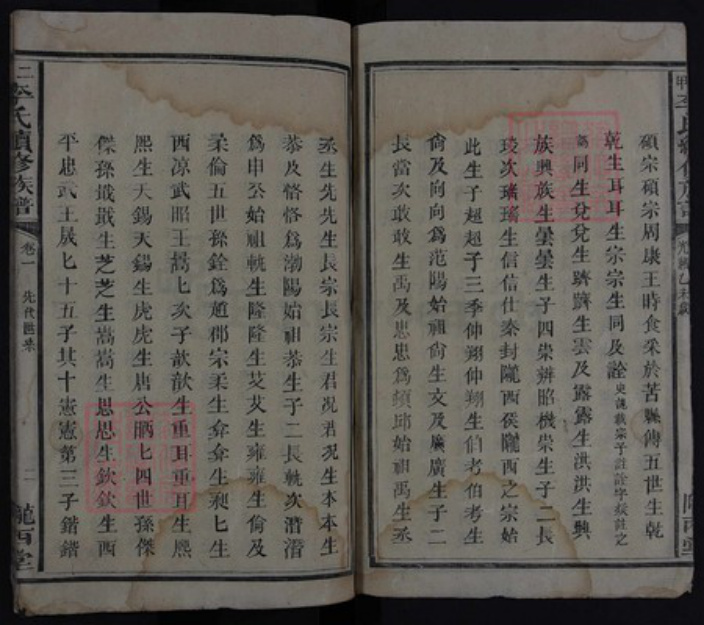 碩宗碩宗周康王時食采於苦縣傳五世生乾
乾生耳耳生宗宗生同及詮史記載宗子註詮字疑註之
爲同生兌兌生躋躋生雲及露露生洪洪生興
族興族生曇曇生子四崇辨昭機崇生子二長
瑤瑤生信信仕秦封隴西侯隴西之宗始
此生子超超子三季仲翔仲翔生伯考伯考生
尙及向向爲范陽始祖尙生文及廣廣生子二
長當次敢敢生禹及忠忠爲頓邱始祖禹生丞
丞生先先生長宗長宗生君况君况生本本生
恭及恪恪爲渤陽始祖恭生子二長軌次潛潛
爲申公始祖軌生隆隆生艾艾生雍雍生倫及
柔倫五世孫銓爲趙郡宗柔生弇弇生昶七生
西凉武昭王暠七次子歆歆生重耳重耳生熈
熈生天錫天錫生虎虎生唐公昞七四世孫傑
傑孫戢戢生芝芝生嵩嵩生思思生欽欽生西
平忠武王晟七十五子其十憲憲第三子鍇鍇
李氏續修族譜
卷一
先代世系
二
隴西堂